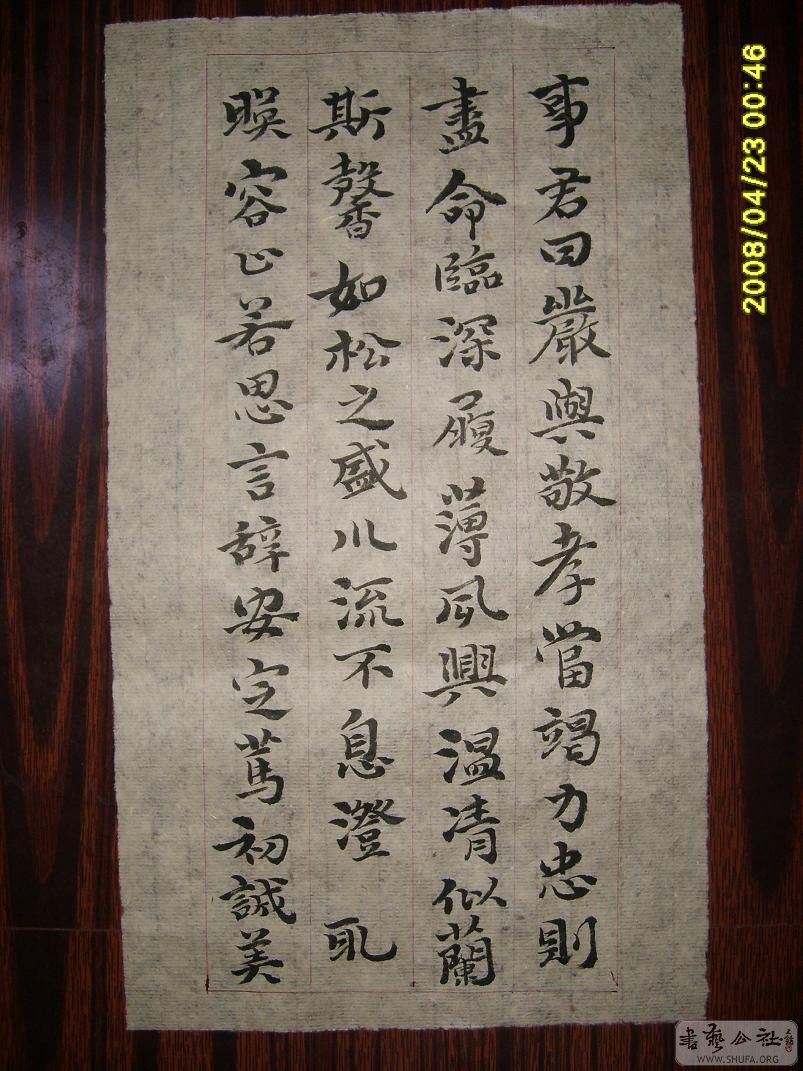 事君曰嚴與敬孝當竭力忠則
盡命臨深履薄夙興温清似蘭
斯馨如松之盛川流不息澄取
暎容止若思言辭安定篤初誠美
2008/04/23 00:46
書藝公社
WWW.SHUFA.ORG